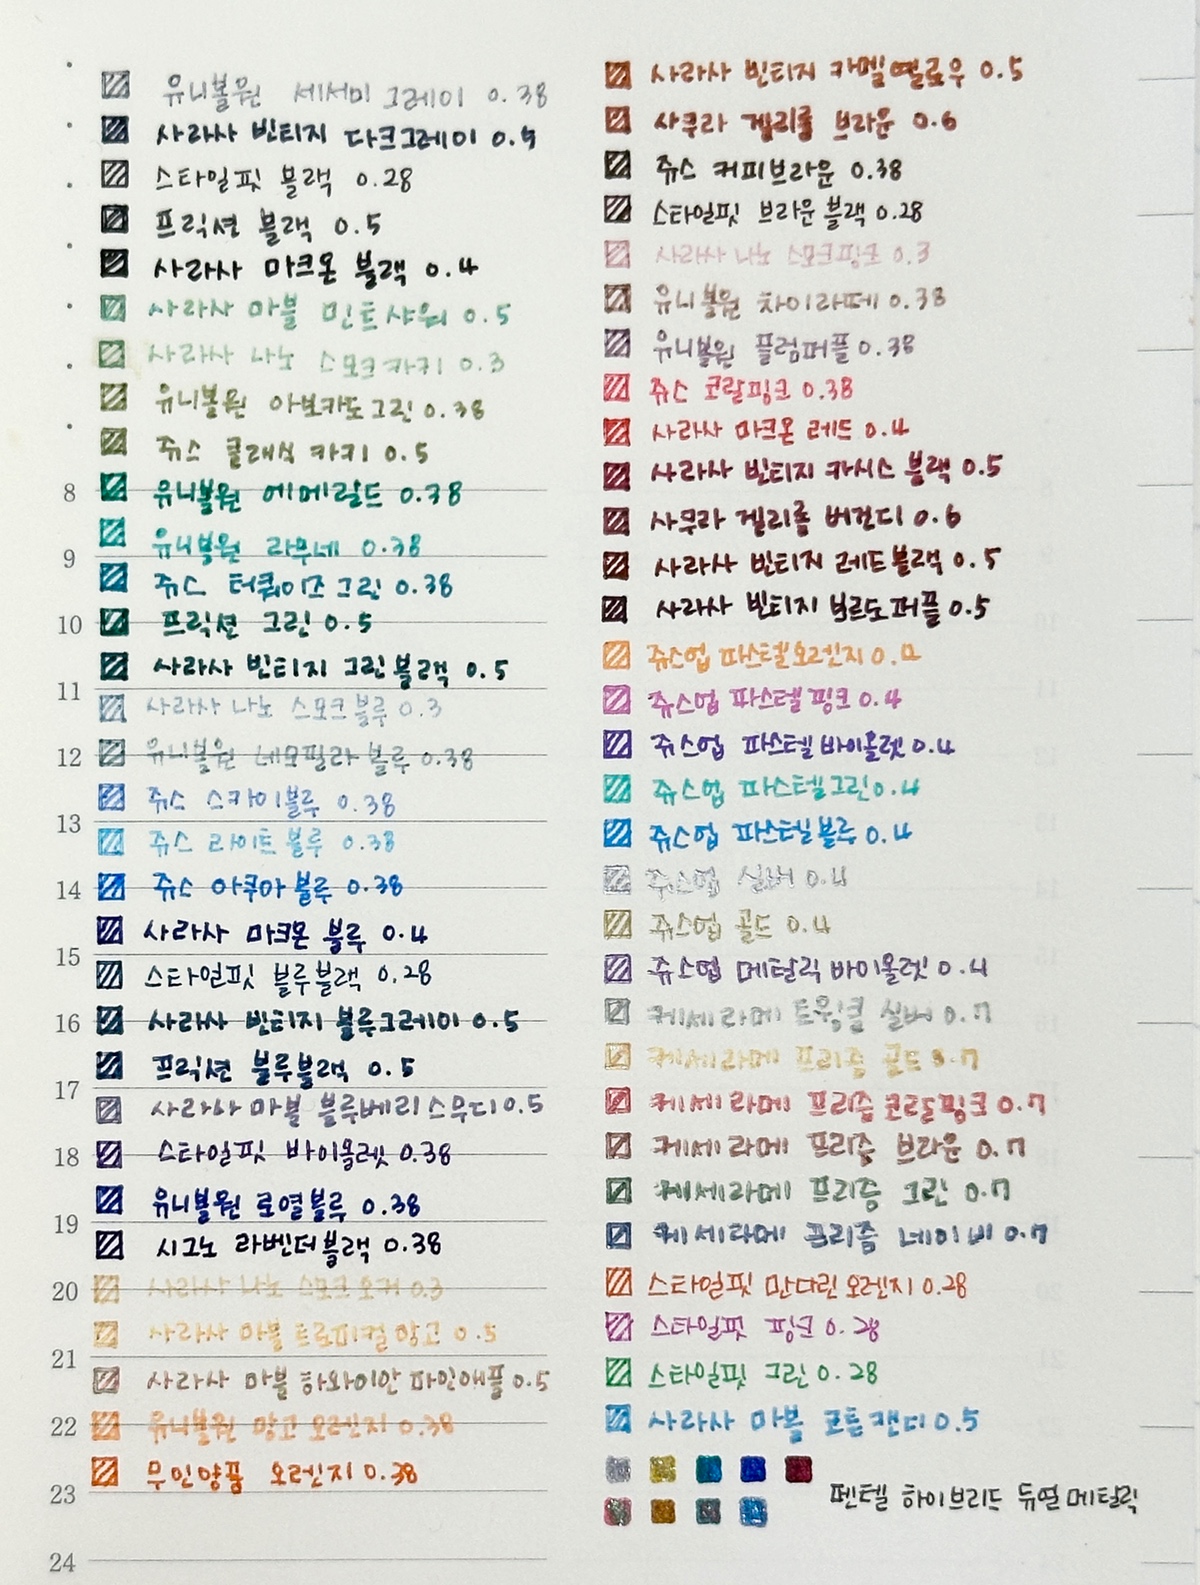 유니볼원 세서미 그레이 0.38
사라사 빈티지 다크그레이 0.5
스타일핏 블랙 0.28
프릭션 블랙 0.5
사라사 마크온 블랙 0.4
사라사 마블 민트샤워 0.5
사라사 나노 스모크카키 0.3
유니볼원 아보카도그린 0.38
쥬스 클래식 카키 0.5
8 유니볼원 에메랄드 0.38
유니볼원 라무네 0.38
9
쥬스 터쿼이즈 그린 0.38
10 프릭션 그린 0.5
사라사 빈티지 그린블랙 0.5
11
사라사 나노 스모크블루 0.3
12 유니볼원 네모필라 블루 0.38
쥬스 스카이블루 0.38
13
쥬스 라이트 블루 0.38
14 쥬스 아쿠아블루 0.38
사라사 마크온 블루 0.4
15
스타일핏 블루블랙 0.28
16 사라사 빈티지 블루그레이 0.5
프릭션 블루블랙 0.5
17
사라사 마블 블루베리스무디 0.5
18 스타일핏 바이올렛 0.38
유니볼원 로열블루 0.38
19
시그노 라벤더블랙 0.38
20 사라사 나노 스모크 오커 0.3
사라사 마블 트로피컬망고 0.5
21
사라사 마블 하와이안 파인애플 0.5
22 유니볼원 망고 오렌지 0.38
무인양품 오렌지 0.38
23
24
사라사 빈티지 카멜옐로우 0.5
사쿠라 겔리롤 브라운 0.6
쥬스 커피브라운 0.38
스타일핏 브라운블랙 0.28
사라사 나노 스모크핑크 0.3
유니볼원 차이라떼 0.38
유니볼원 플럼퍼플 0.38
쥬스 코랄핑크 0.38
사라사 마크온 레드 0.4
사라사 빈티지 카시스 블랙 0.5
사쿠라 겔리롤 버건디 0.6
사라사 빈티지 레드블랙 0.5
사라사 빈티지 보르도퍼플 0.5
쥬스업 파스텔오렌지 0.4
쥬스업 파스텔핑크 0.4
쥬스업 파스텔바이올렛 0.4
쥬스업 파스텔그린 0.4
쥬스업 파스텔블루 0.4
쥬스업 실버 0.4
쥬스업 골드 0.4
쥬스업 메탈릭바이올렛 0.4
케세라메 트윙클 실버 0.7
케세라메 프리즘 골드 0.7
케세라메 프리즘 코랄핑크 0.7
케세라메 프리즘 브라운 0.7
케세라메 프리즘 그린 0.7
케세라메 프리즘 네이비 0.7
스타일핏 만다린 오렌지 0.28
스타일핏 핑크 0.28
스타일핏 그린 0.28
사라사 마블 코튼캔디 0.5
펜텔 하이브리드 듀얼메탈릭